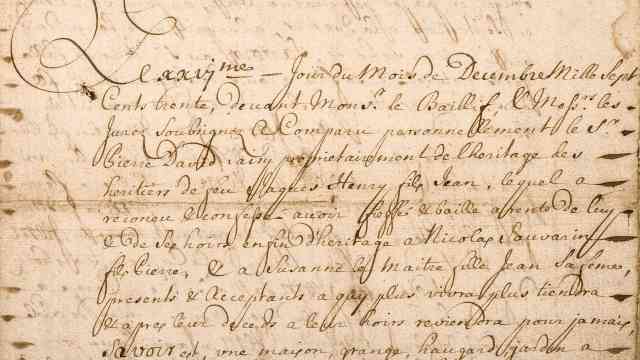 Le xxvj.me Jour du Mois de Decembre Mille Sept
Cents trente, devant Mons.r le Baillif & Mess.rs les
Jurez Soubsignez Est Comparu personnellement le S.r
Pierre David proprietairement de l'heritage des
heritiers de feu Jaques Henry fils Jean, lequel a
reconeu & confessé avoir fieffé & baille a rente de luy
& de ses hoirs en fin d'heritage a Nicolas Sauvarin
fils Pierre, & a Susanne le Maitre fille Jean Sa feme,
presents & Acceptants a qui plus vivra plus tiendra
& apres leur deceds a leur hoirs reviendra pour jamais
Savoir est, une maison, grange, haugard jardin a